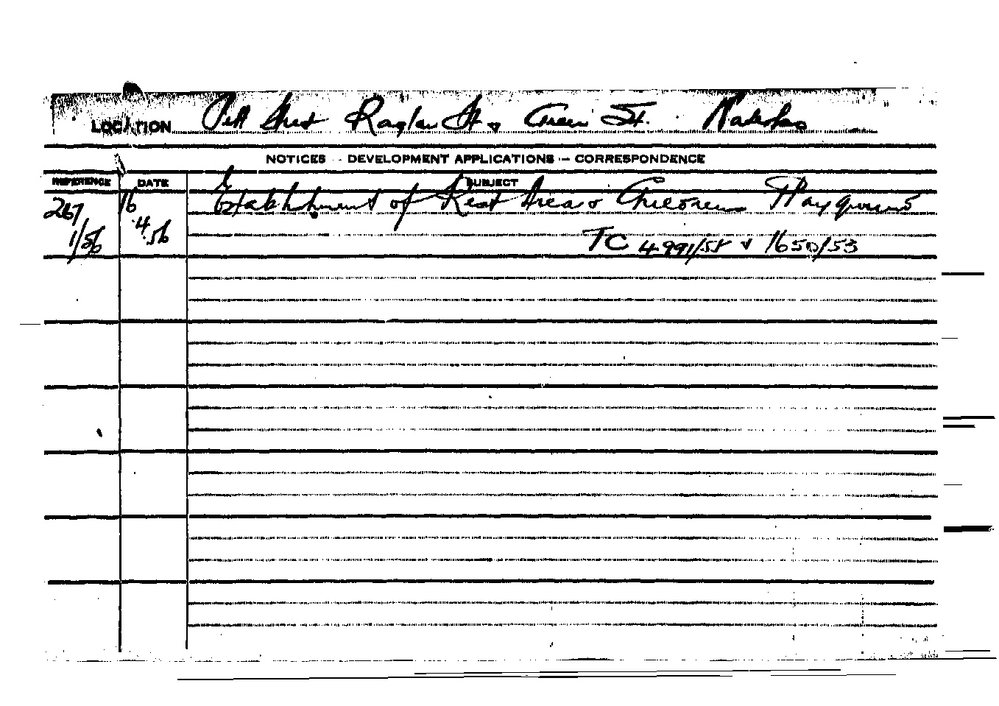 LOCATION Pitt Street Raglan St & Green St.
NOTICES -- DEVELOPMENT APPLICATIONS -- CORRESPONDENCE
REFERENCE DATE SUBJECT
267 16 Establishment of Rest Area & Childrens Playground
1/56 4.56 TC 4991/55 & 1650/53